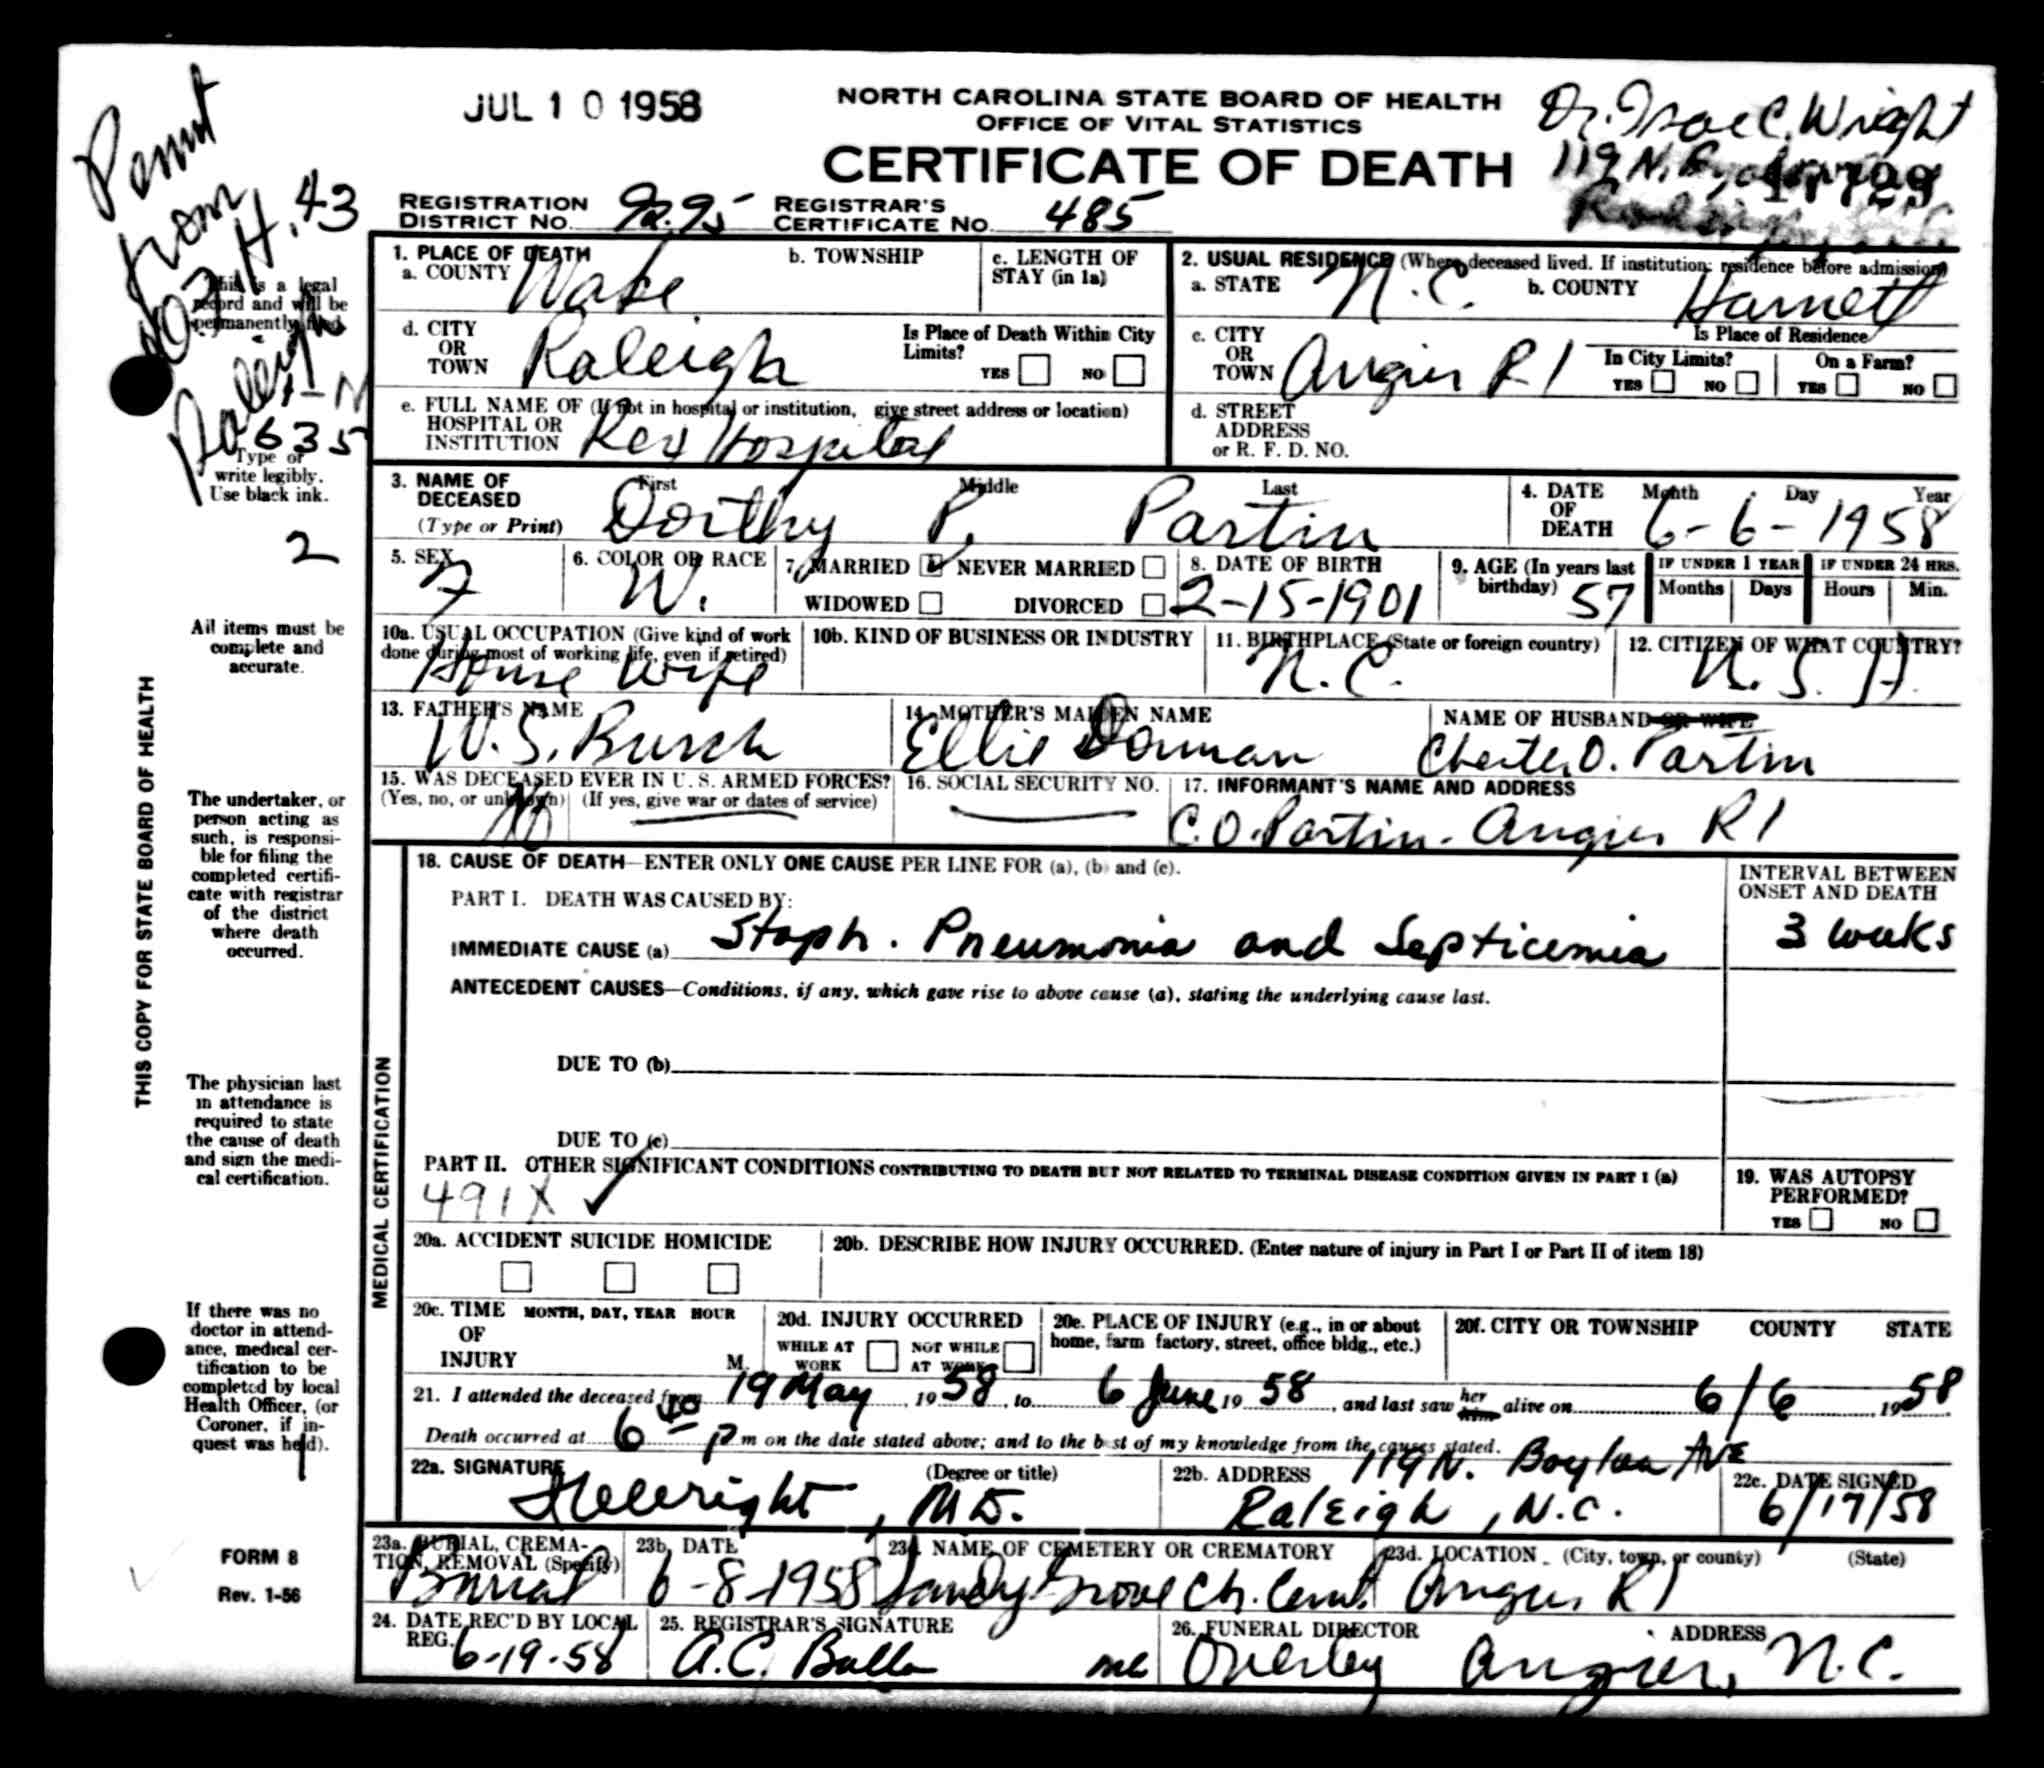 JUL 10 1958
NORTH CAROLINA STATE BOARD OF HEALTH
OFFICE OF VITAL STATISTICS
CERTIFICATE OF DEATH
Dr. Isaac C. Wright
119 N.
17729
Raleigh
Permit
from
H. 43
Raleigh
635
REGISTRATION DISTRICT No. 92.95 REGISTRAR'S CERTIFICATE No. 485
This is a legal record and will be permanently filed.
Type or write legibly. Use black ink.
2
All items must be complete and accurate.
THIS COPY FOR STATE BOARD OF HEALTH
The undertaker, or person acting as such, is responsible for filing the completed certificate with registrar of the district where death occurred.
The physician last in attendance is required to state the cause of death and sign the medical certification.
If there was no doctor in attendance, medical certification to be completed by local Health Officer, (or Coroner, if inquest was held).
FORM 8
Rev. 1-56
1. PLACE OF DEATH
a. COUNTY Wake b. TOWNSHIP c. LENGTH OF STAY (in 1a)
2. USUAL RESIDENCE (Where deceased lived. If institution: residence before admission)
a. STATE N.C. b. COUNTY Harnett
d. CITY OR TOWN Raleigh Is Place of Death Within City Limits? YES NO
c. CITY OR TOWN Angier R 1 Is Place of Residence In City Limits? YES NO On a Farm? YES NO
e. FULL NAME OF (If not in hospital or institution, give street address or location) HOSPITAL OR INSTITUTION Rex Hospital
d. STREET ADDRESS or R. F. D. NO.
3. NAME OF DECEASED (Type or Print) First Middle Last
Dorthy P. Partin
4. DATE OF DEATH Month Day Year
6-6-1958
5. SEX F 6. COLOR OR RACE W. 7. MARRIED NEVER MARRIED WIDOWED DIVORCED
8. DATE OF BIRTH 2-15-1901 9. AGE (In years last birthday) 57 IF UNDER 1 YEAR Months Days IF UNDER 24 HRS. Hours Min.
10a. USUAL OCCUPATION (Give kind of work done during most of working life, even if retired) House Wife
10b. KIND OF BUSINESS OR INDUSTRY
11. BIRTHPLACE (State or foreign country) N.C.
12. CITIZEN OF WHAT COUNTRY? U.S.A.
13. FATHER'S NAME W.S. Burch
14. MOTHER'S MAIDEN NAME Ellie Dorman
NAME OF HUSBAND OR WIFE Chester O. Partin
15. WAS DECEASED EVER IN U. S. ARMED FORCES? (Yes, no, or unknown) (If yes, give war or dates of service) No
16. SOCIAL SECURITY NO.
17. INFORMANT'S NAME AND ADDRESS C.O. Partin - Angier R 1
MEDICAL CERTIFICATION
18. CAUSE OF DEATH—ENTER ONLY ONE CAUSE PER LINE FOR (a), (b) and (c).
INTERVAL BETWEEN ONSET AND DEATH
PART I. DEATH WAS CAUSED BY:
IMMEDIATE CAUSE (a) Staph. Pneumonia and Septicemia 3 weeks
ANTECEDENT CAUSES—Conditions, if any, which gave rise to above cause (a), stating the underlying cause last.
DUE TO (b)
DUE TO (c)
PART II. OTHER SIGNIFICANT CONDITIONS CONTRIBUTING TO DEATH BUT NOT RELATED TO TERMINAL DISEASE CONDITION GIVEN IN PART I (a)
491X ✓
19. WAS AUTOPSY PERFORMED? YES NO
20a. ACCIDENT SUICIDE HOMICIDE
20b. DESCRIBE HOW INJURY OCCURRED. (Enter nature of injury in Part I or Part II of item 18)
20c. TIME OF INJURY MONTH, DAY, YEAR HOUR M.
20d. INJURY OCCURRED WHILE AT WORK NOT WHILE AT WORK
20e. PLACE OF INJURY (e.g., in or about home, farm factory, street, office bldg., etc.)
20f. CITY OR TOWNSHIP COUNTY STATE
21. I attended the deceased from 19 May, 19 58, to 6 June, 19 58, and last saw her him alive on 6/6 1958
Death occurred at 6 40 p m on the date stated above; and to the best of my knowledge from the causes stated.
22a. SIGNATURE (Degree or title) ICWright, M.D.
22b. ADDRESS 119 N. Boylan Ave Raleigh, N.C.
22c. DATE SIGNED 6/17/58
23a. BURIAL, CREMATION, REMOVAL (Specify) Burial
23b. DATE 6-8-1958
23c. NAME OF CEMETERY OR CREMATORY Sandy Grove Ch. Cem.
23d. LOCATION (City, town, or county) (State) Angier R 1
24. DATE REC'D BY LOCAL REG. 6-19-58
25. REGISTRAR'S SIGNATURE A.C. Bulla mc
26. FUNERAL DIRECTOR ADDRESS Overby Angier, N.C.